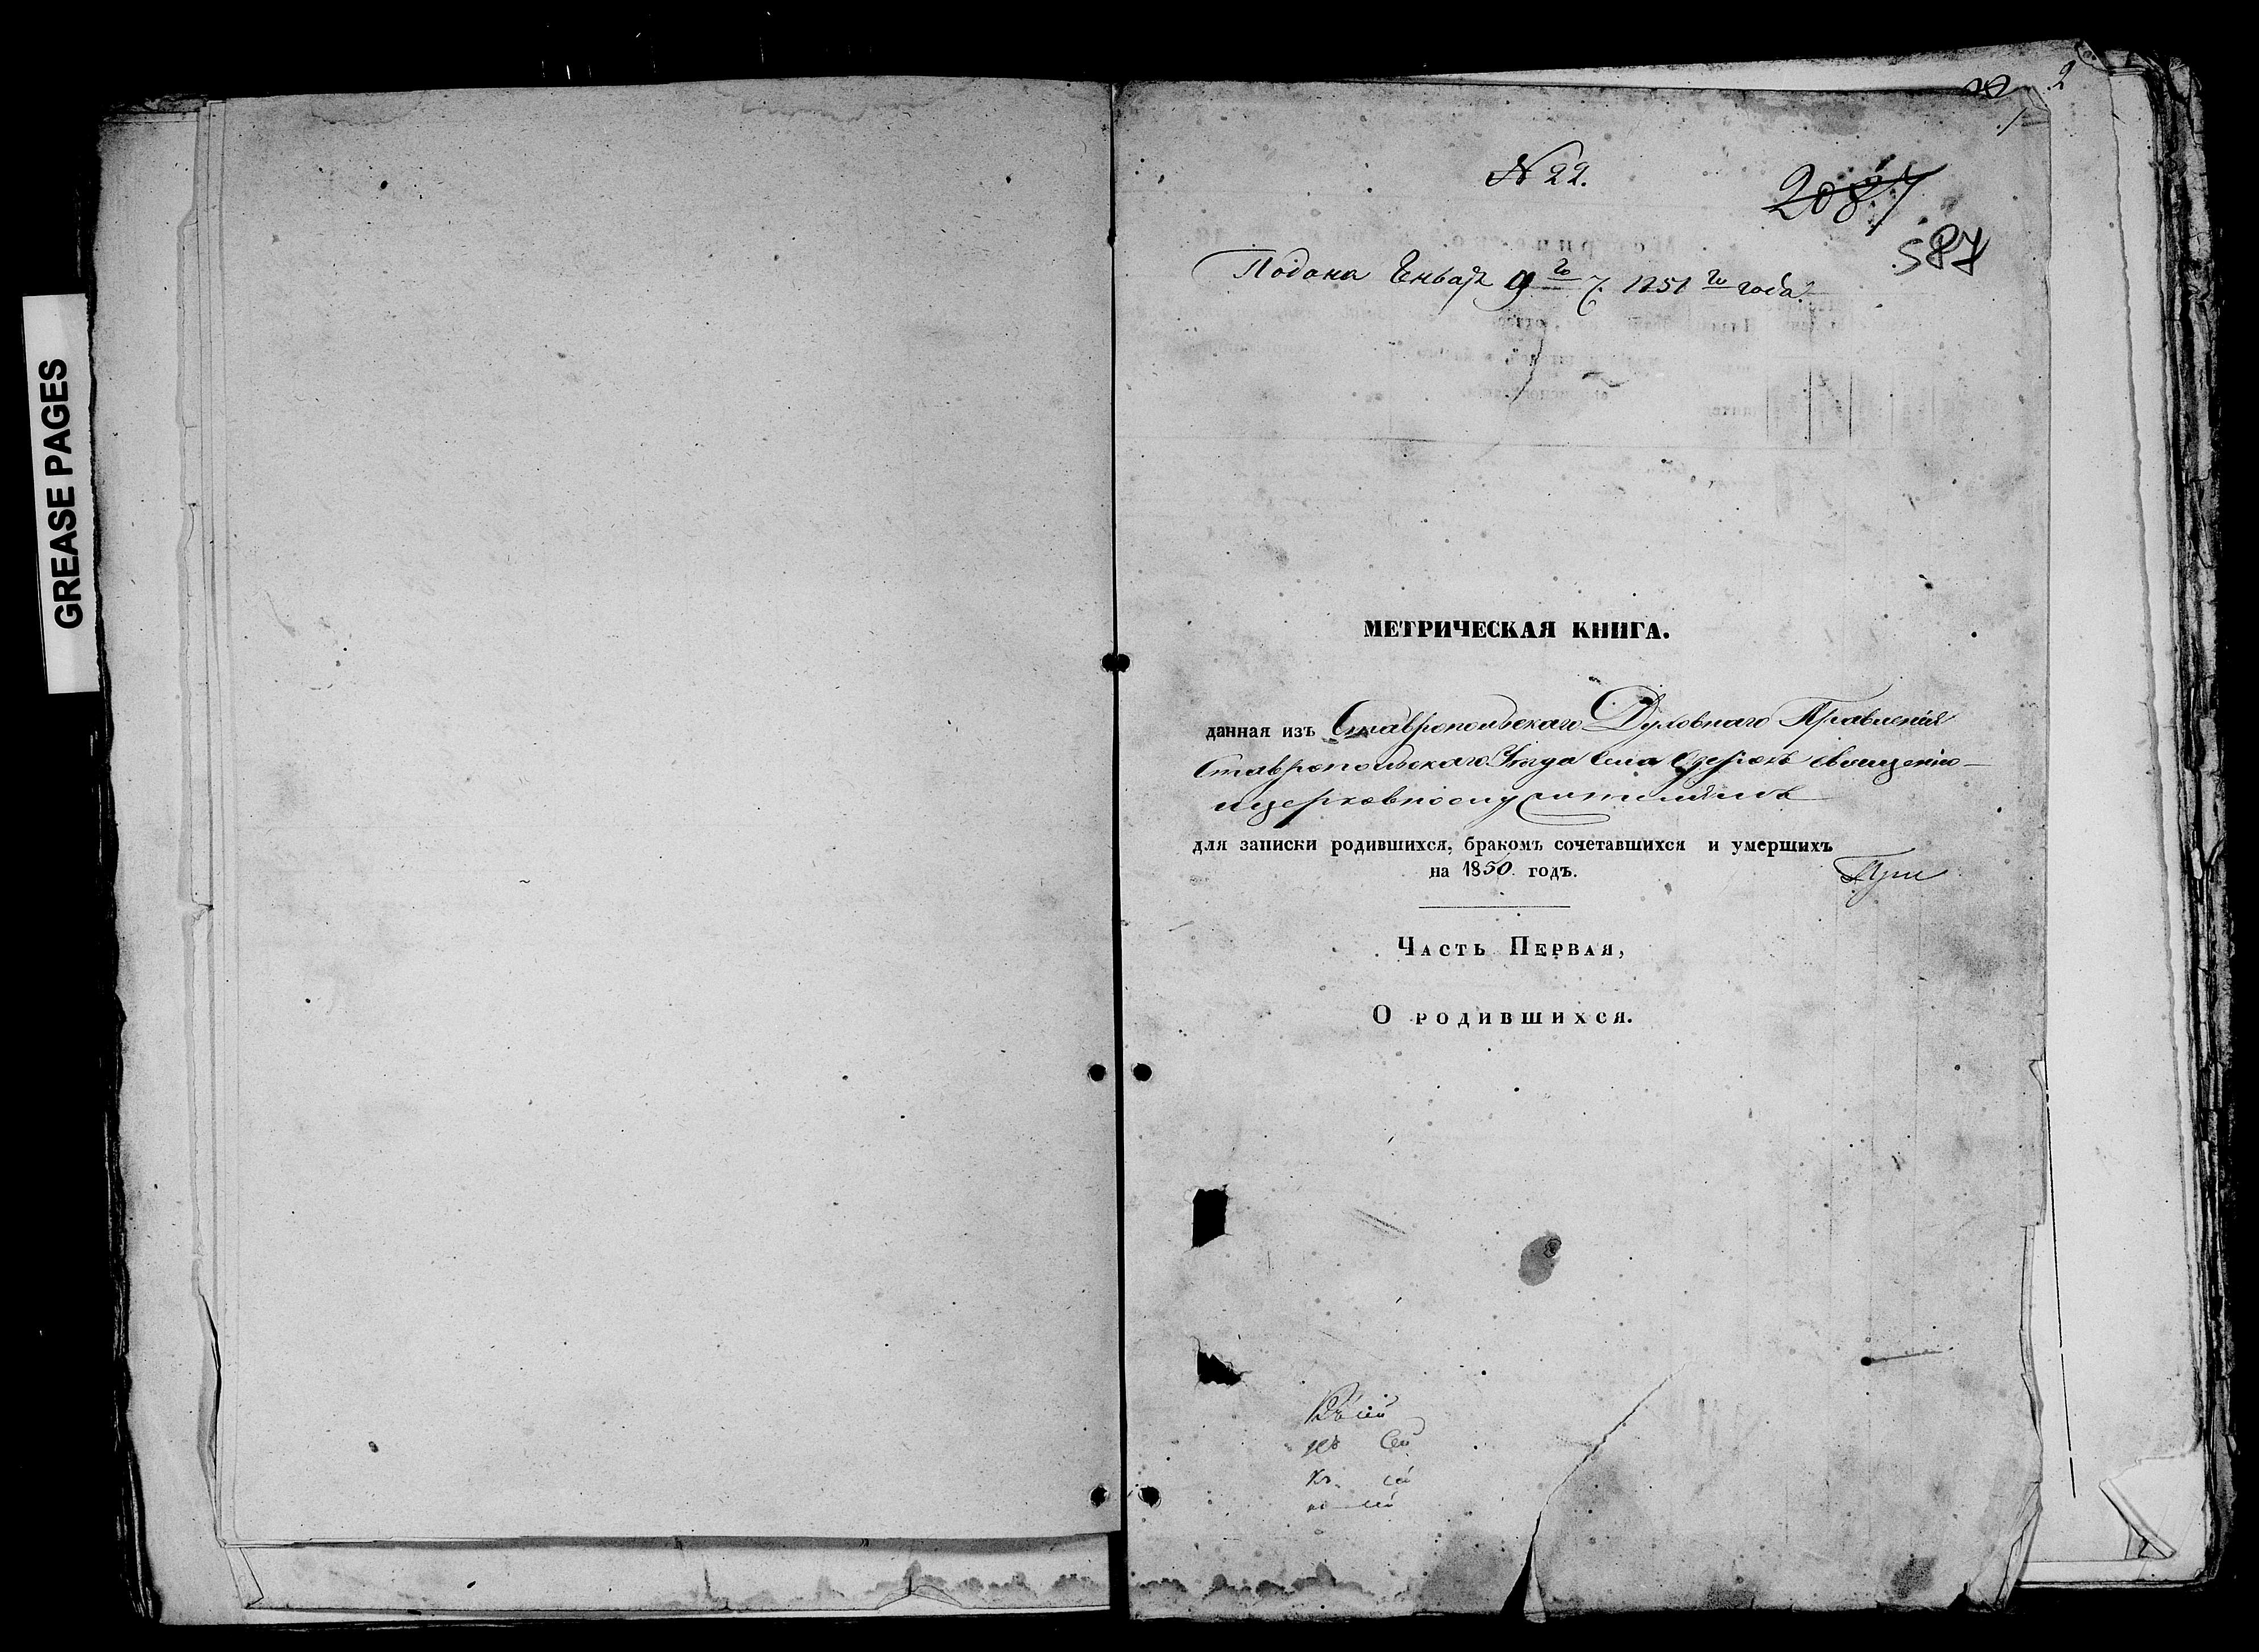 GREASE PAGES
2
N 22.
2087
587
Подана Генваря 9го 1851го года.
МЕТРИЧЕСКАЯ КНИГА.
данная изъ Ставропольскаго Духовнаго Правленія
Ставропольскаго Уѣзда Села Озерокъ священно-
церковнослужителямъ
для записки родившихся, бракомъ сочетавшихся и умершихъ
на 1850. годъ.
Часть Первая,
О родившихся.